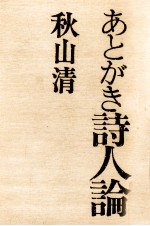 あとがき詩人論
秋山清